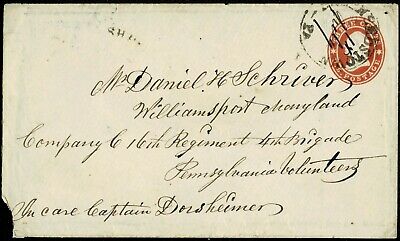 Mr Daniel H Schriver
Williamsport Maryland
Company C 16th Regiment 4th Brigade
Pennsylvania Volunteers
In care Captain Dorsheimer